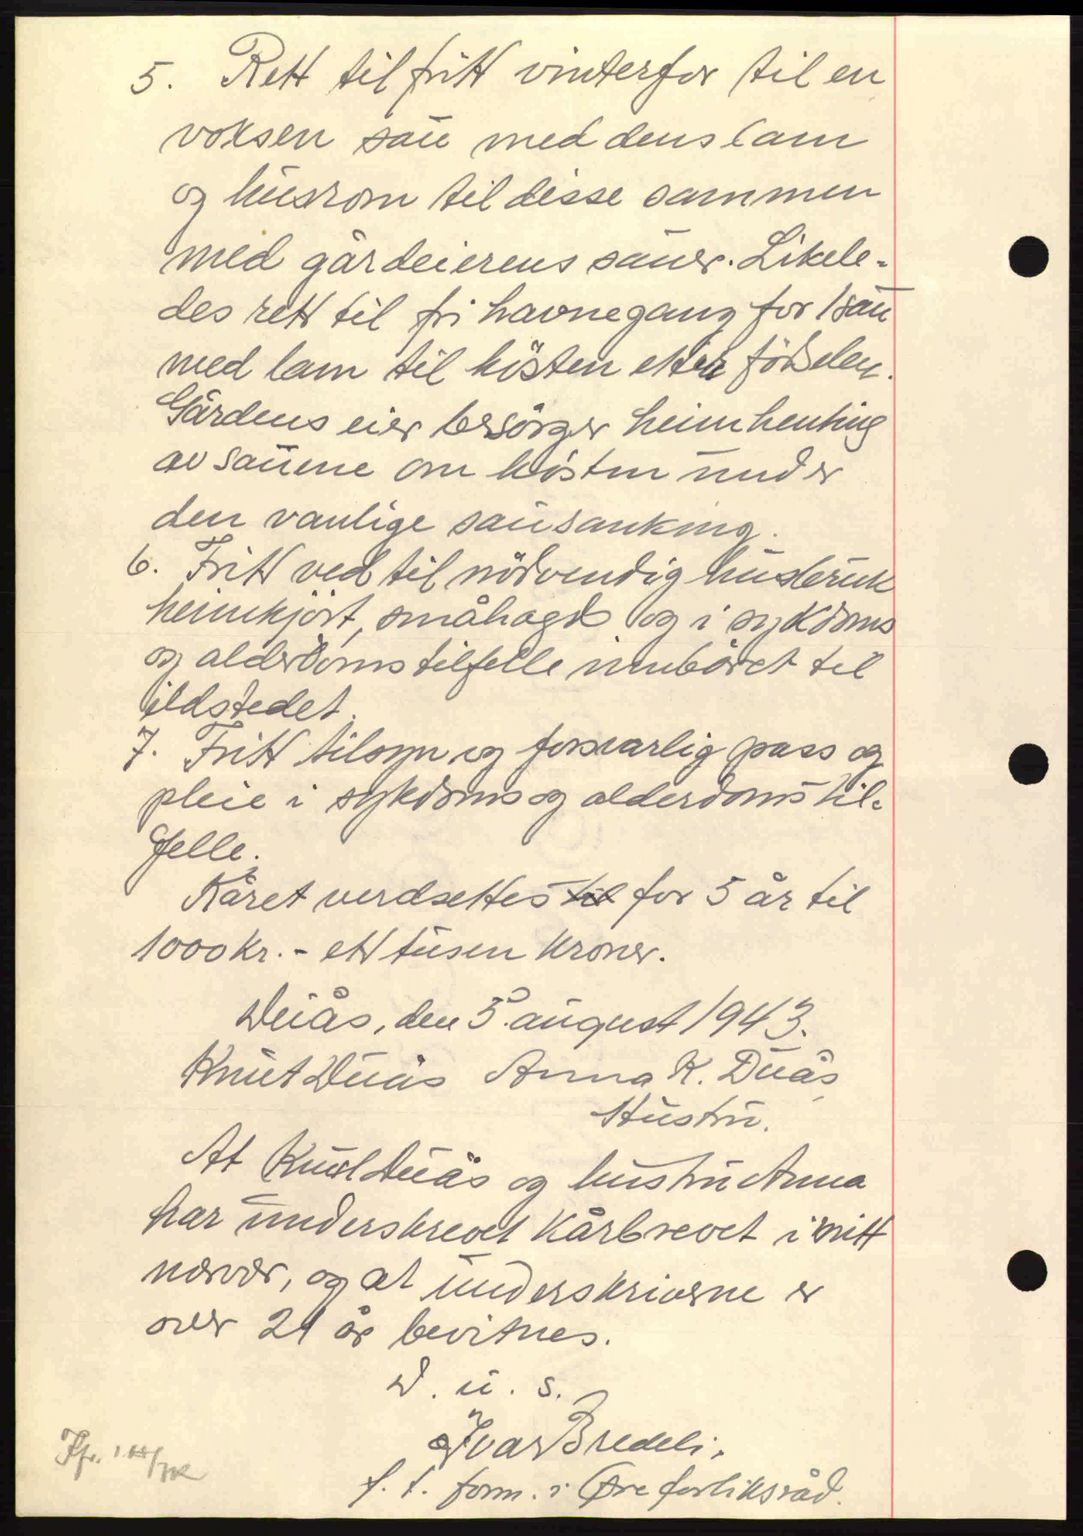 5. Rett til fritt vinterfor til en
voksen sau med dens lam
og husrom til disse sammen
med gårdeierens sauer. Likele-
des rett til fri havnegang for 1 sau
med lam til hösten etter födselen.
Gårdens eier besörger heimhenting
av sauene om hösten under
den vanlige sausanking.
6. Fritt ved til nödvendig husbruk
heimkjört, småhagd og i sykdoms
og alderdomstilfelle innbåret til
ildstedet.
7. Fritt tilsyn og forsvarlig pass og
pleie i sykdoms og alderdoms til-
felle.
Kåret verdsettes til for 5 år til
1000 kr. - ett tusen kroner.
Duås, den 5. august 1943.
Knut Duås Anna K. Duås
Hustru.
At Knut Duås og hustru Anna
har underskrevet kårbrevet i mitt
nærvær, og at underskriverne er
over 21 år bevitnes.
D. u. s.
Ivar Bredeli.
f. t. form. i Öre forliksråd.